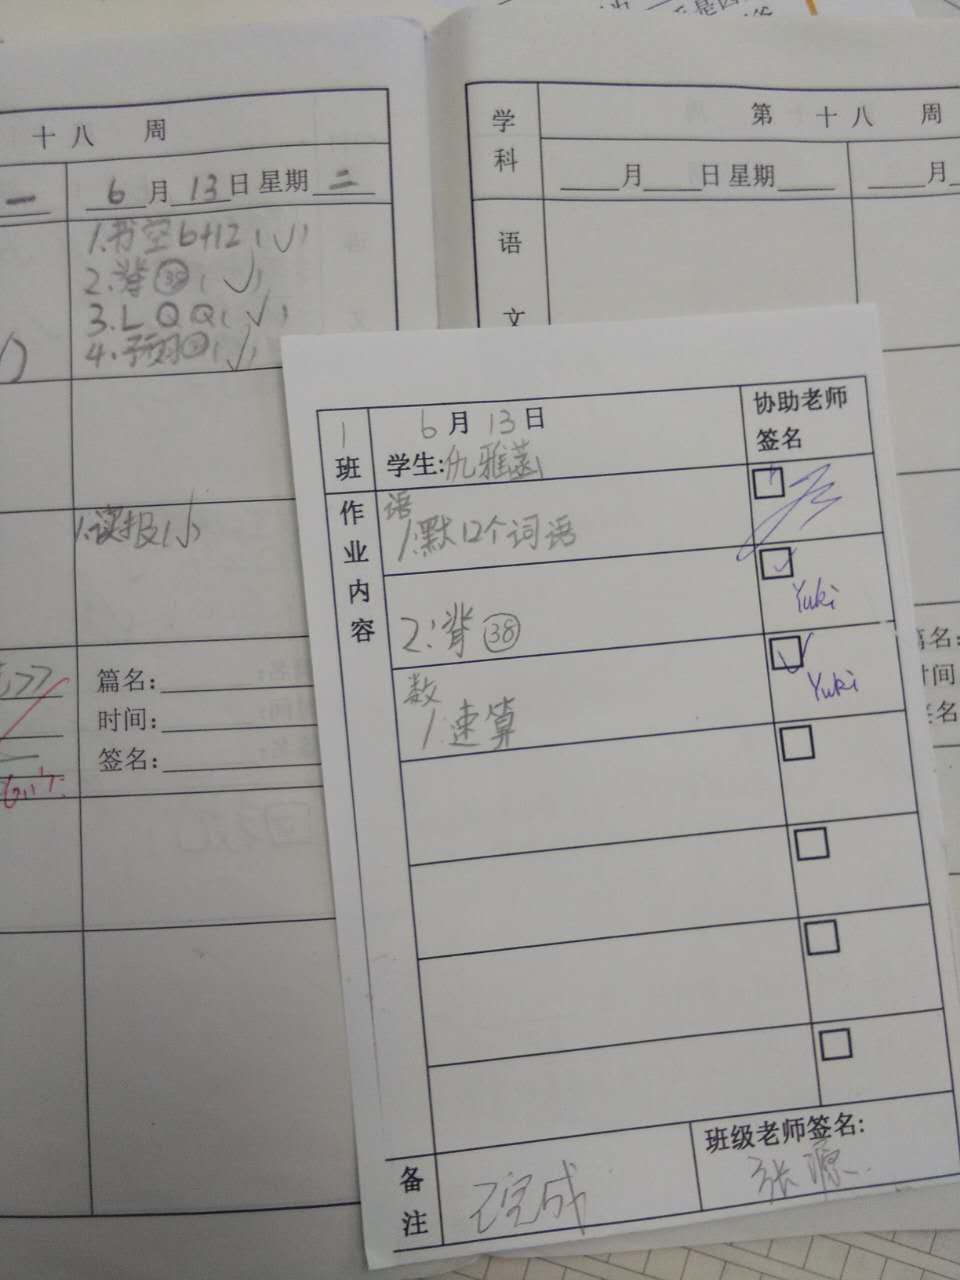 十八 周
一
6月13日 星期二
1.书空6+12(√)
2.背㊳(√)
3.L Q Q(√)
4.预习(√)
1.读报(√)
篇名:
时间:
签名:
学科
第 十八 周
月 日 星期
月
语文
1班
6月13日
学生:仇雅
协助老师签名
作业内容
语
1.默12个词语
2.背㊳
Yuki
数
1.速算
Yuki
备注
已完成
班级老师签名:
张源
篇名:
时间
签名